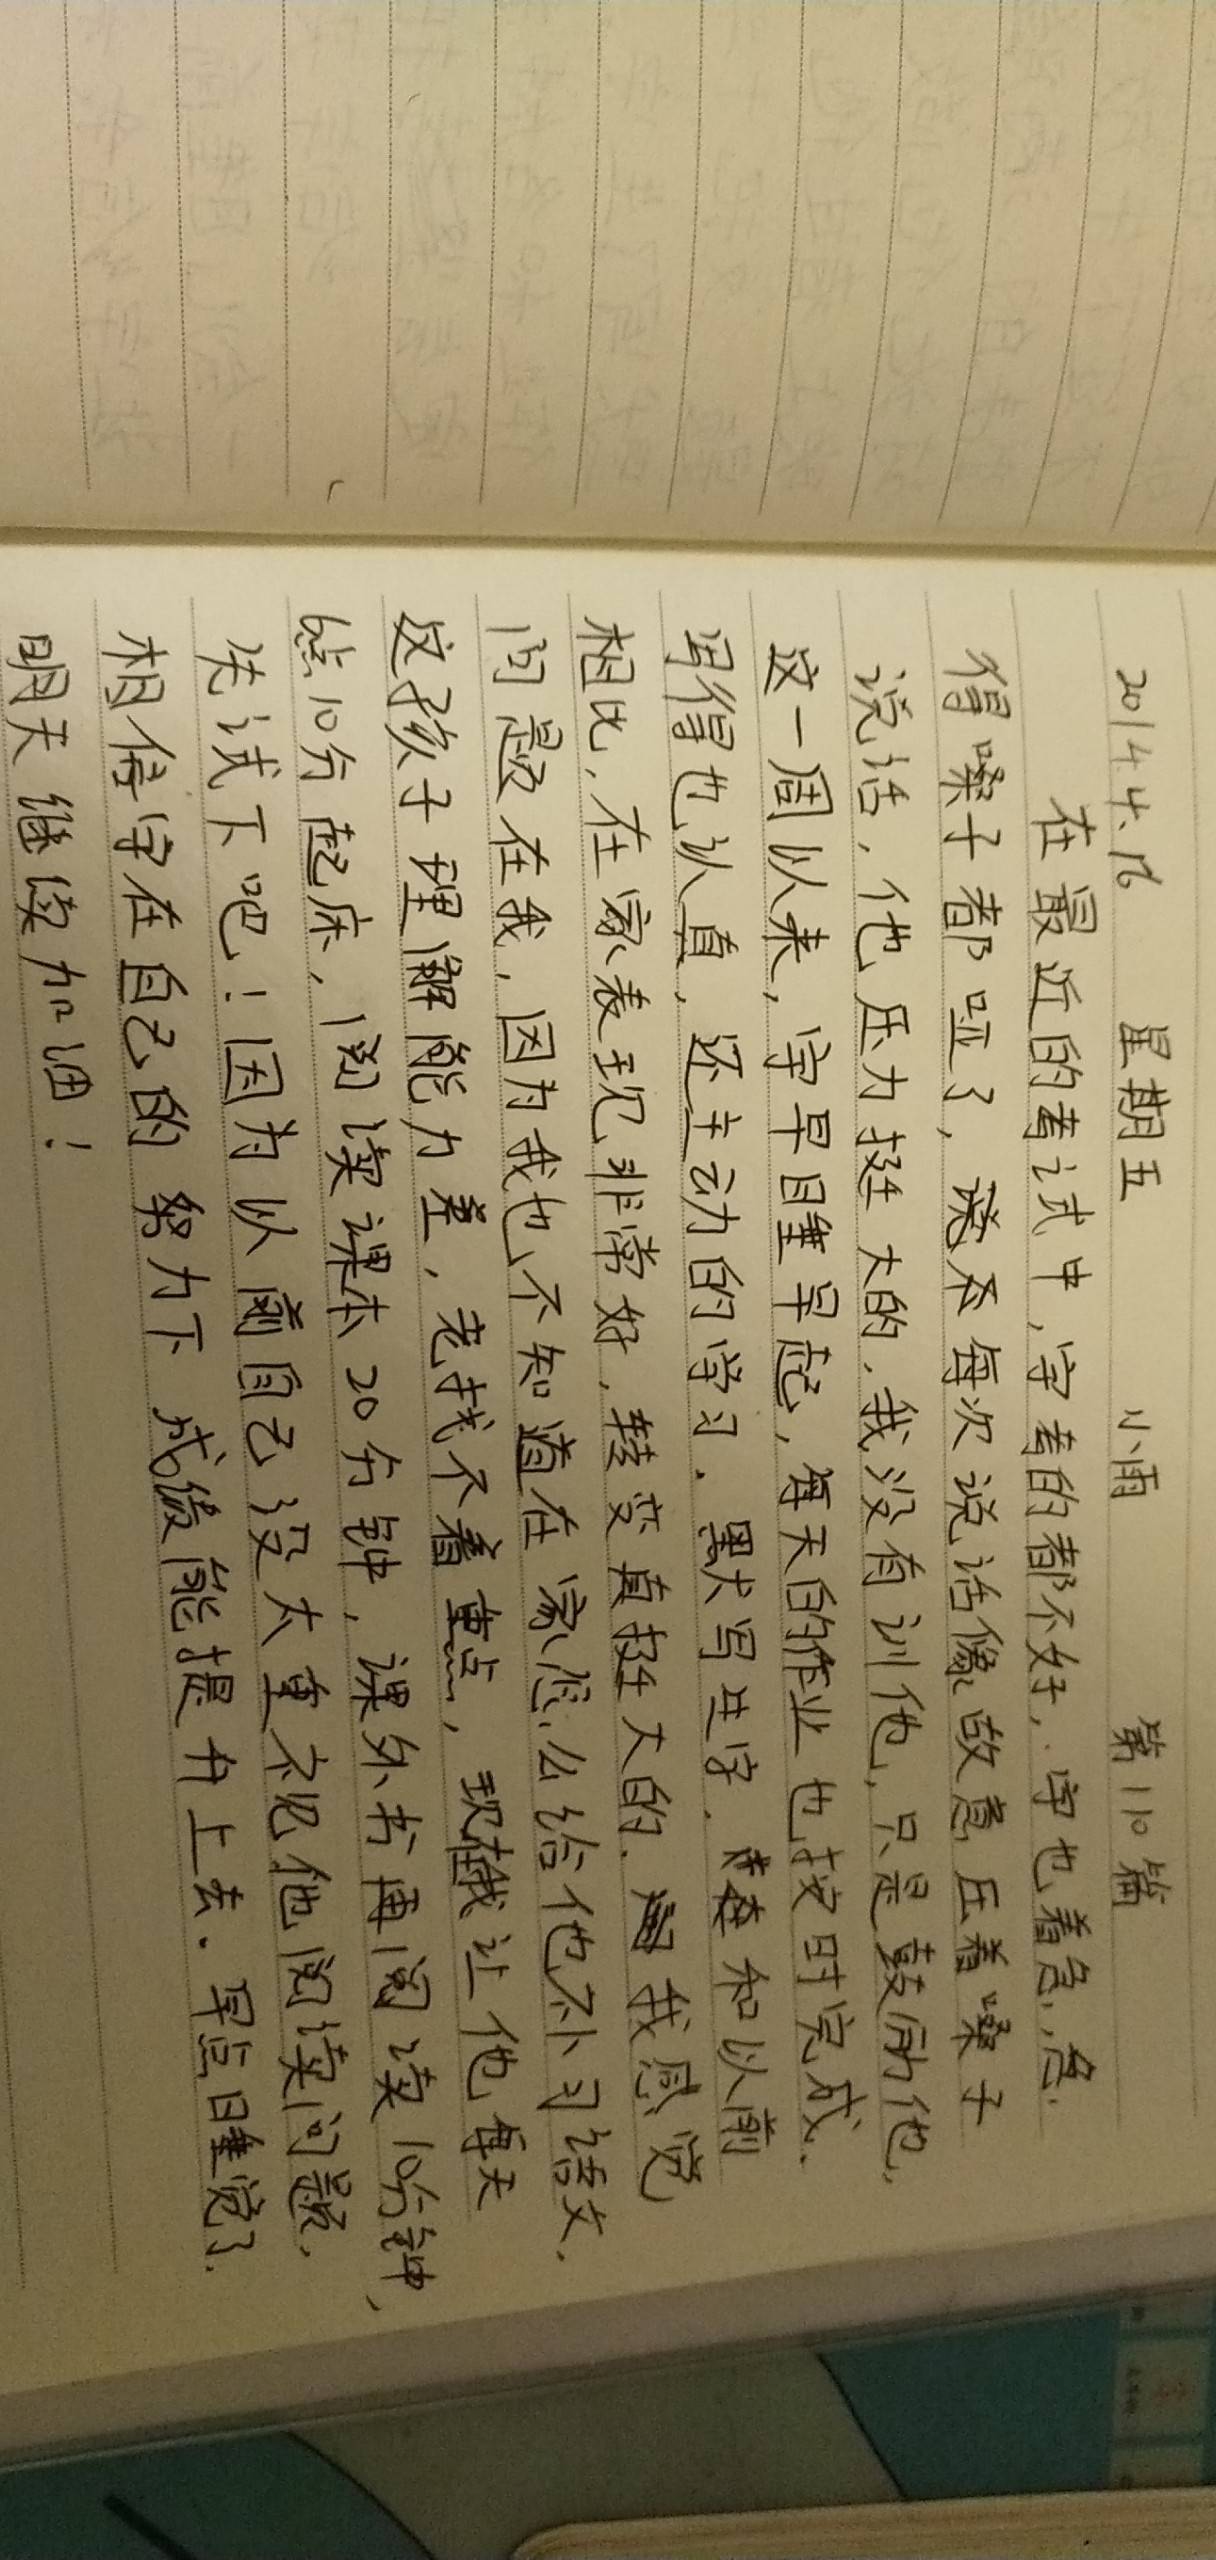 星期五 小雨 第110篇
在最近的考试中,宇考的都不好,宇也着急,急
得嗓子都哑了,每次说话像故意压着嗓子
说话,他压力挺大的,我没有训他,只是鼓励他,
这一周以来,宇早睡早起,每天的作业也按时完成,
写得也认真,还主动的学习,默写生字,和以前
相比,在家表现非常好,转变真挺大的,我感觉
问题在我,因为我也不知道在家怎么给他补习语文,
这孩子理解能力差,老找不着重点,现在我让他每天
6点10分起床,阅读课本20分钟,课外书再阅读10分钟,
先试下吧!因为以前自己没太重视他阅读问题,
相信宇在自己的努力下成绩能提升上去.早点睡觉了.
明天继续加油!